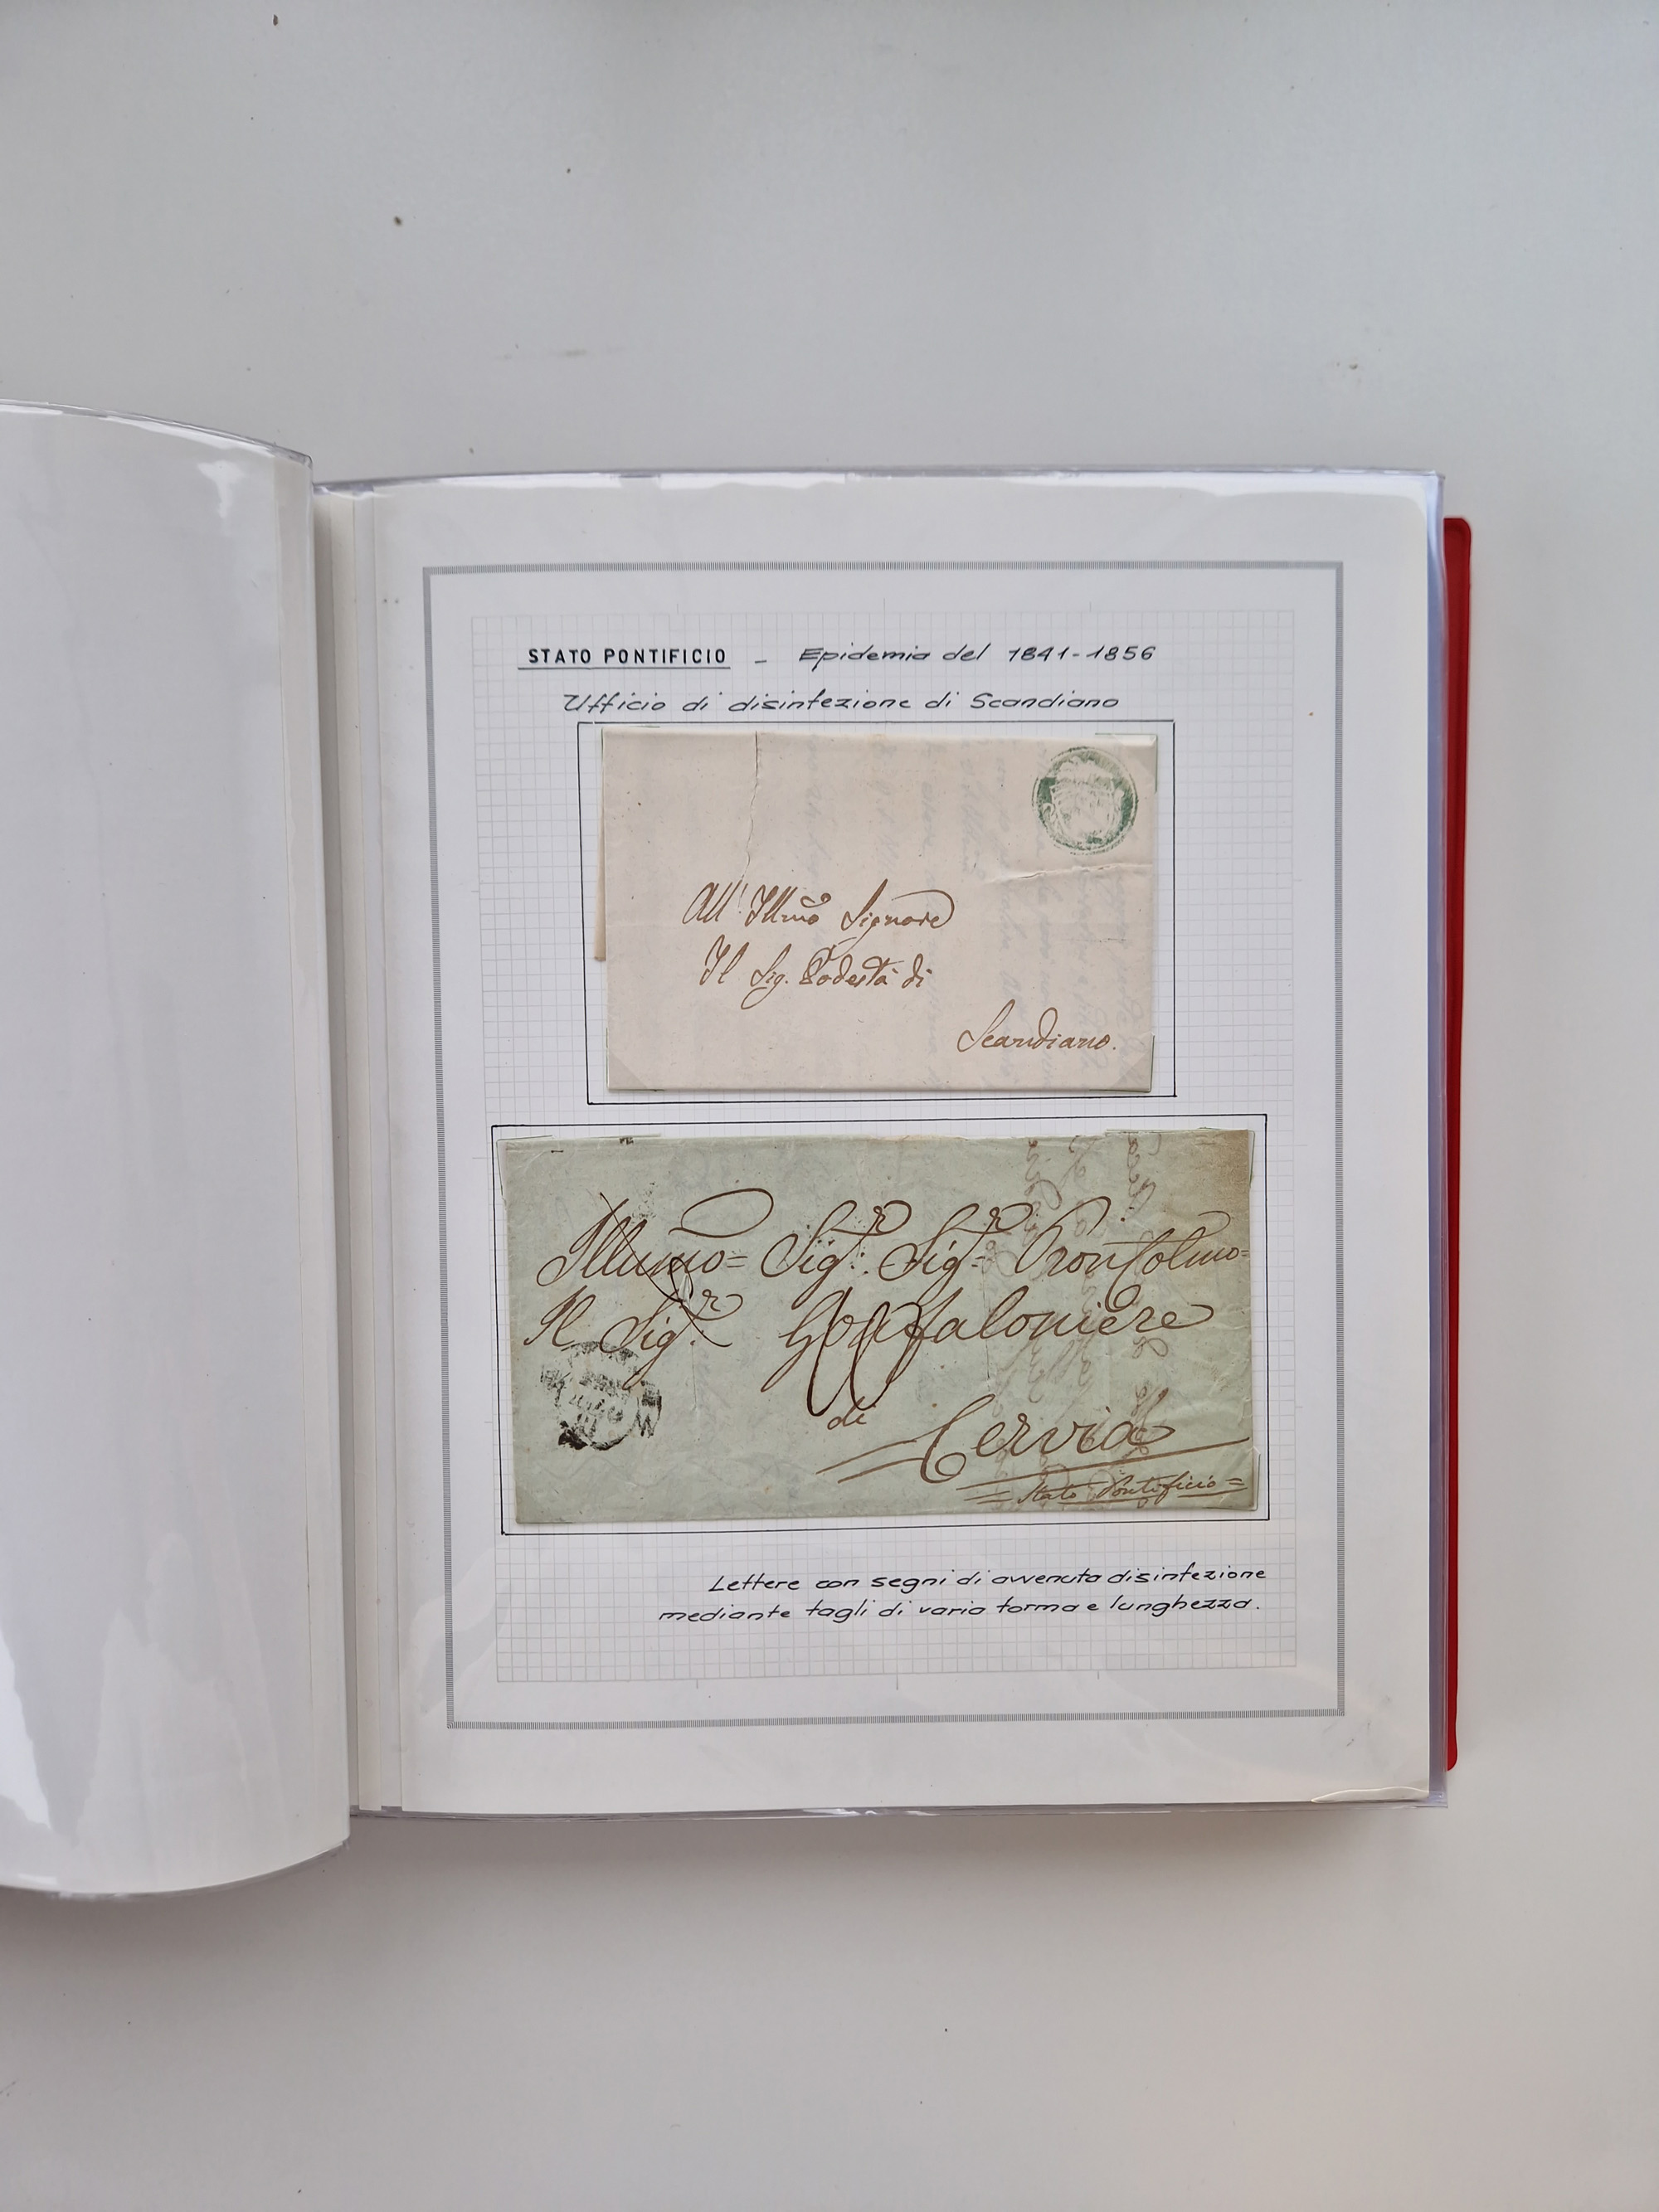 STATO PONTIFICIO - Epidemia del 1841-1856
Ufficio di disinfezione di Scandiano
All' Illmo Signore
Il Sig. Podestà di
Scandiano.
Illumo= Sigr: Sigr= Pron Colmo=
Il Sigr. Gonfaloniere
di
Cervia
= Stato Pontificio =
Lettere con segni di avvenuta disinfezione
mediante tagli di varia forma e lunghezza.